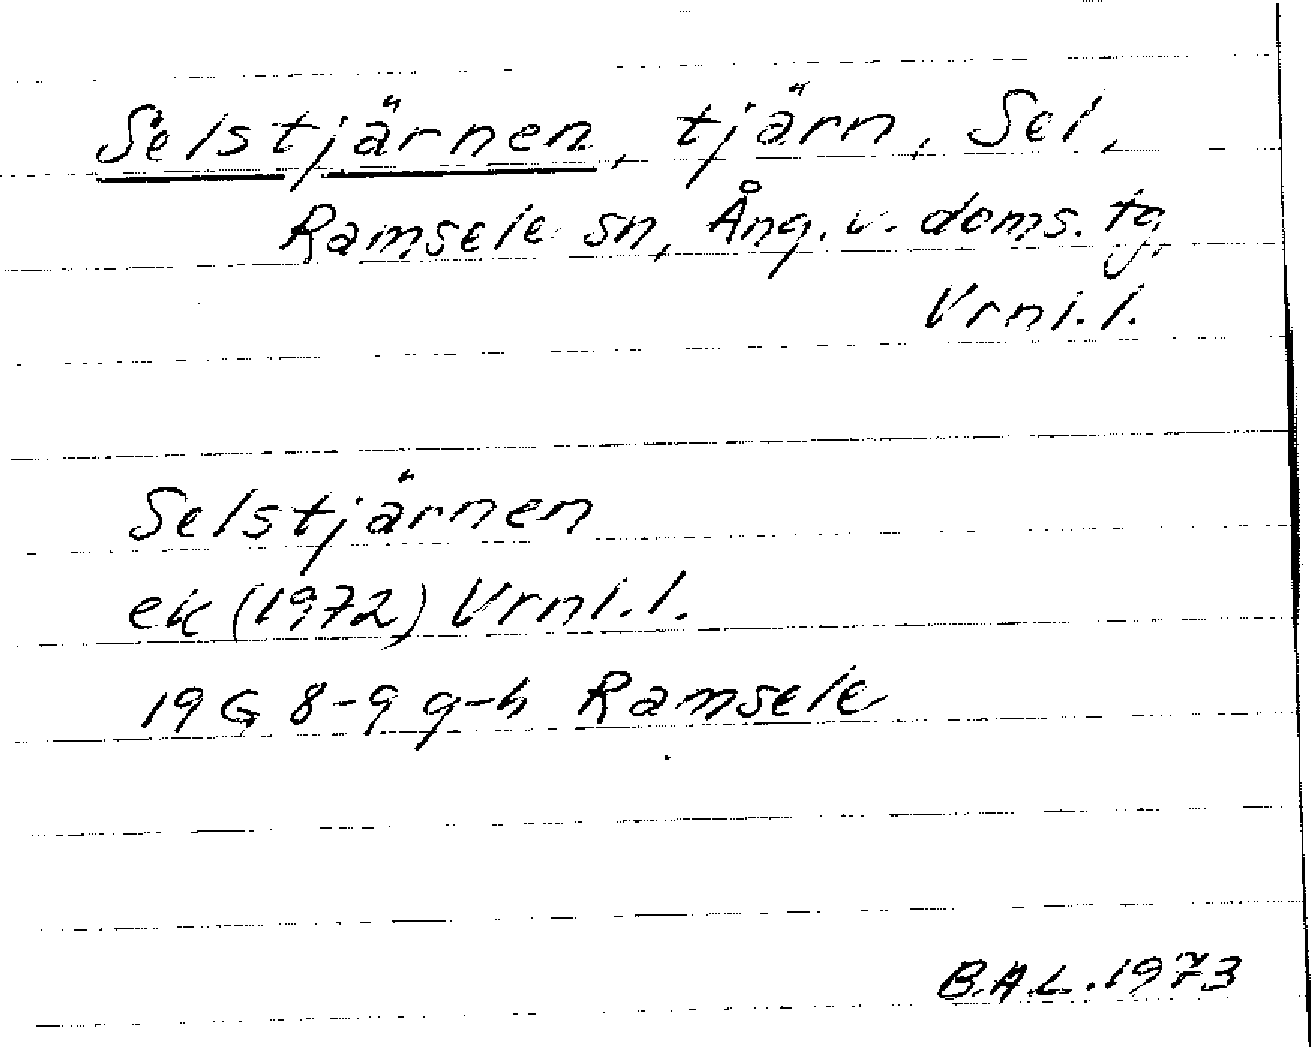 Selstjärnen, tjärn, Sel,
Ramsele sn, Ång. v. doms. tg,
Vrnl. l.
Selstjärnen
ek (1972) Vrnl. l.
19 G 8-9 g-h Ramsele
B.A.L. 1973